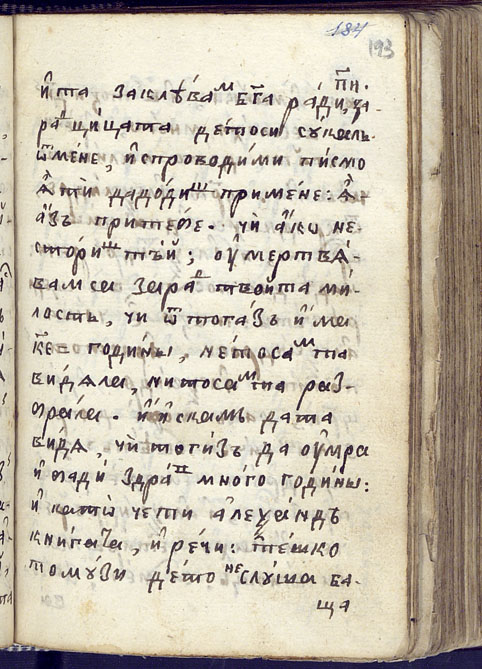 184
193
и҆та заклѣвамъ бг҃а ради, за-
рад цицата дето си сукаль
ѿ мене, и҆спроводи ми писмо
ти дадоди ш при мене:
а҆зъ при тебе. чи а҆ко не
стори ш тъй; оу҆мертвѧ-
вам са зарад твоита ми-
лость, чи ѿ тогазъ и҆ма
к҃е годины, нето сам та
видѧла, нито сам та раз-
брала. и҆ и҆скамъ да та
видѧ, чи тогизъ да оу҆мра
и҆ бади здрав много годины:
и҆ като чети а҆леѯандъ
книгата, и҆ речи: тешко
томузи дето не слуша ба-
ща